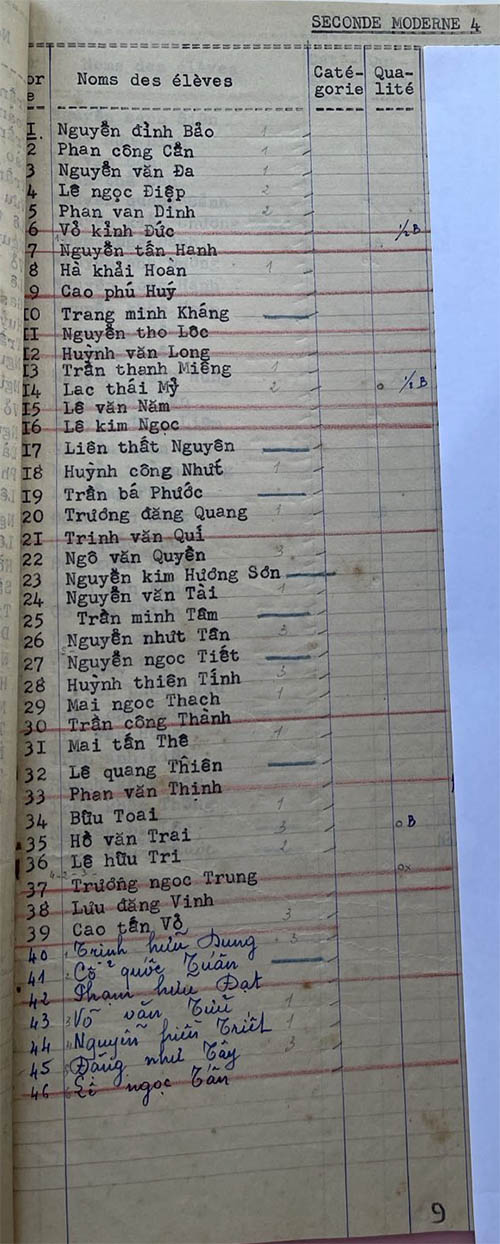 SECONDE MODERNE 4
or Noms des élèves Caté- Qua-
e gorie lité
I. Nguyễn đình Bảo 1
2 Phan công Cẩn 1
3 Nguyễn văn Đa 1
4 Lê ngọc Điệp 2
5 Phan van Dinh 2
6 Vỏ kỉnh Đức ½ B
7 Nguyễn tấn Hạnh
8 Hà khải Hoàn 1
9 Cao phú Huý
IO Trang minh Kháng
II Nguyễn tho Lôc
I2 Huỳnh văn Long
I3 Trần thanh Miêng 1
I4 Lac thái Mỷ 2 o ½ B
I5 Lê văn Năm
I6 Lê kim Ngọc
I7 Liên thất Nguyên
I8 Huỳnh công Nhứt 1
I9 Trần bá Phước
20 Trương đăng Quang 1
2I Trinh văn Quí
22 Ngô văn Quyền 3
23 Nguyễn kim Hương Sơn
24 Nguyễn văn Tài 1
25 Trần minh Tâm
26 Nguyễn nhứt Tấn 3
27 Nguyễn ngọc Tiết
28 Huỳnh thiên Tính 3
29 Mai ngoc Thach 1
30 Trần công Thành
3I Mai tấn Thê 1
32 Lê quang Thiên
33 Phan văn Thịnh
34 Bữu Toai 1
35 Hồ văn Trai 3 o B
36 Lê hữu Tri 2
37 Trương ngoc Trung ox
38 Lưu đăng Vinh
39 Cao tấn Vỏ 3
40 Trinh hữu Dung 3
41 Cồ quốc Tuấn
42 Phạm hữu Đạt
43 Võ văn Tửu 1
44 Nguyễn hiền Triết 1
45 Đặng như Tây 3
46 ngọc Tấn
9